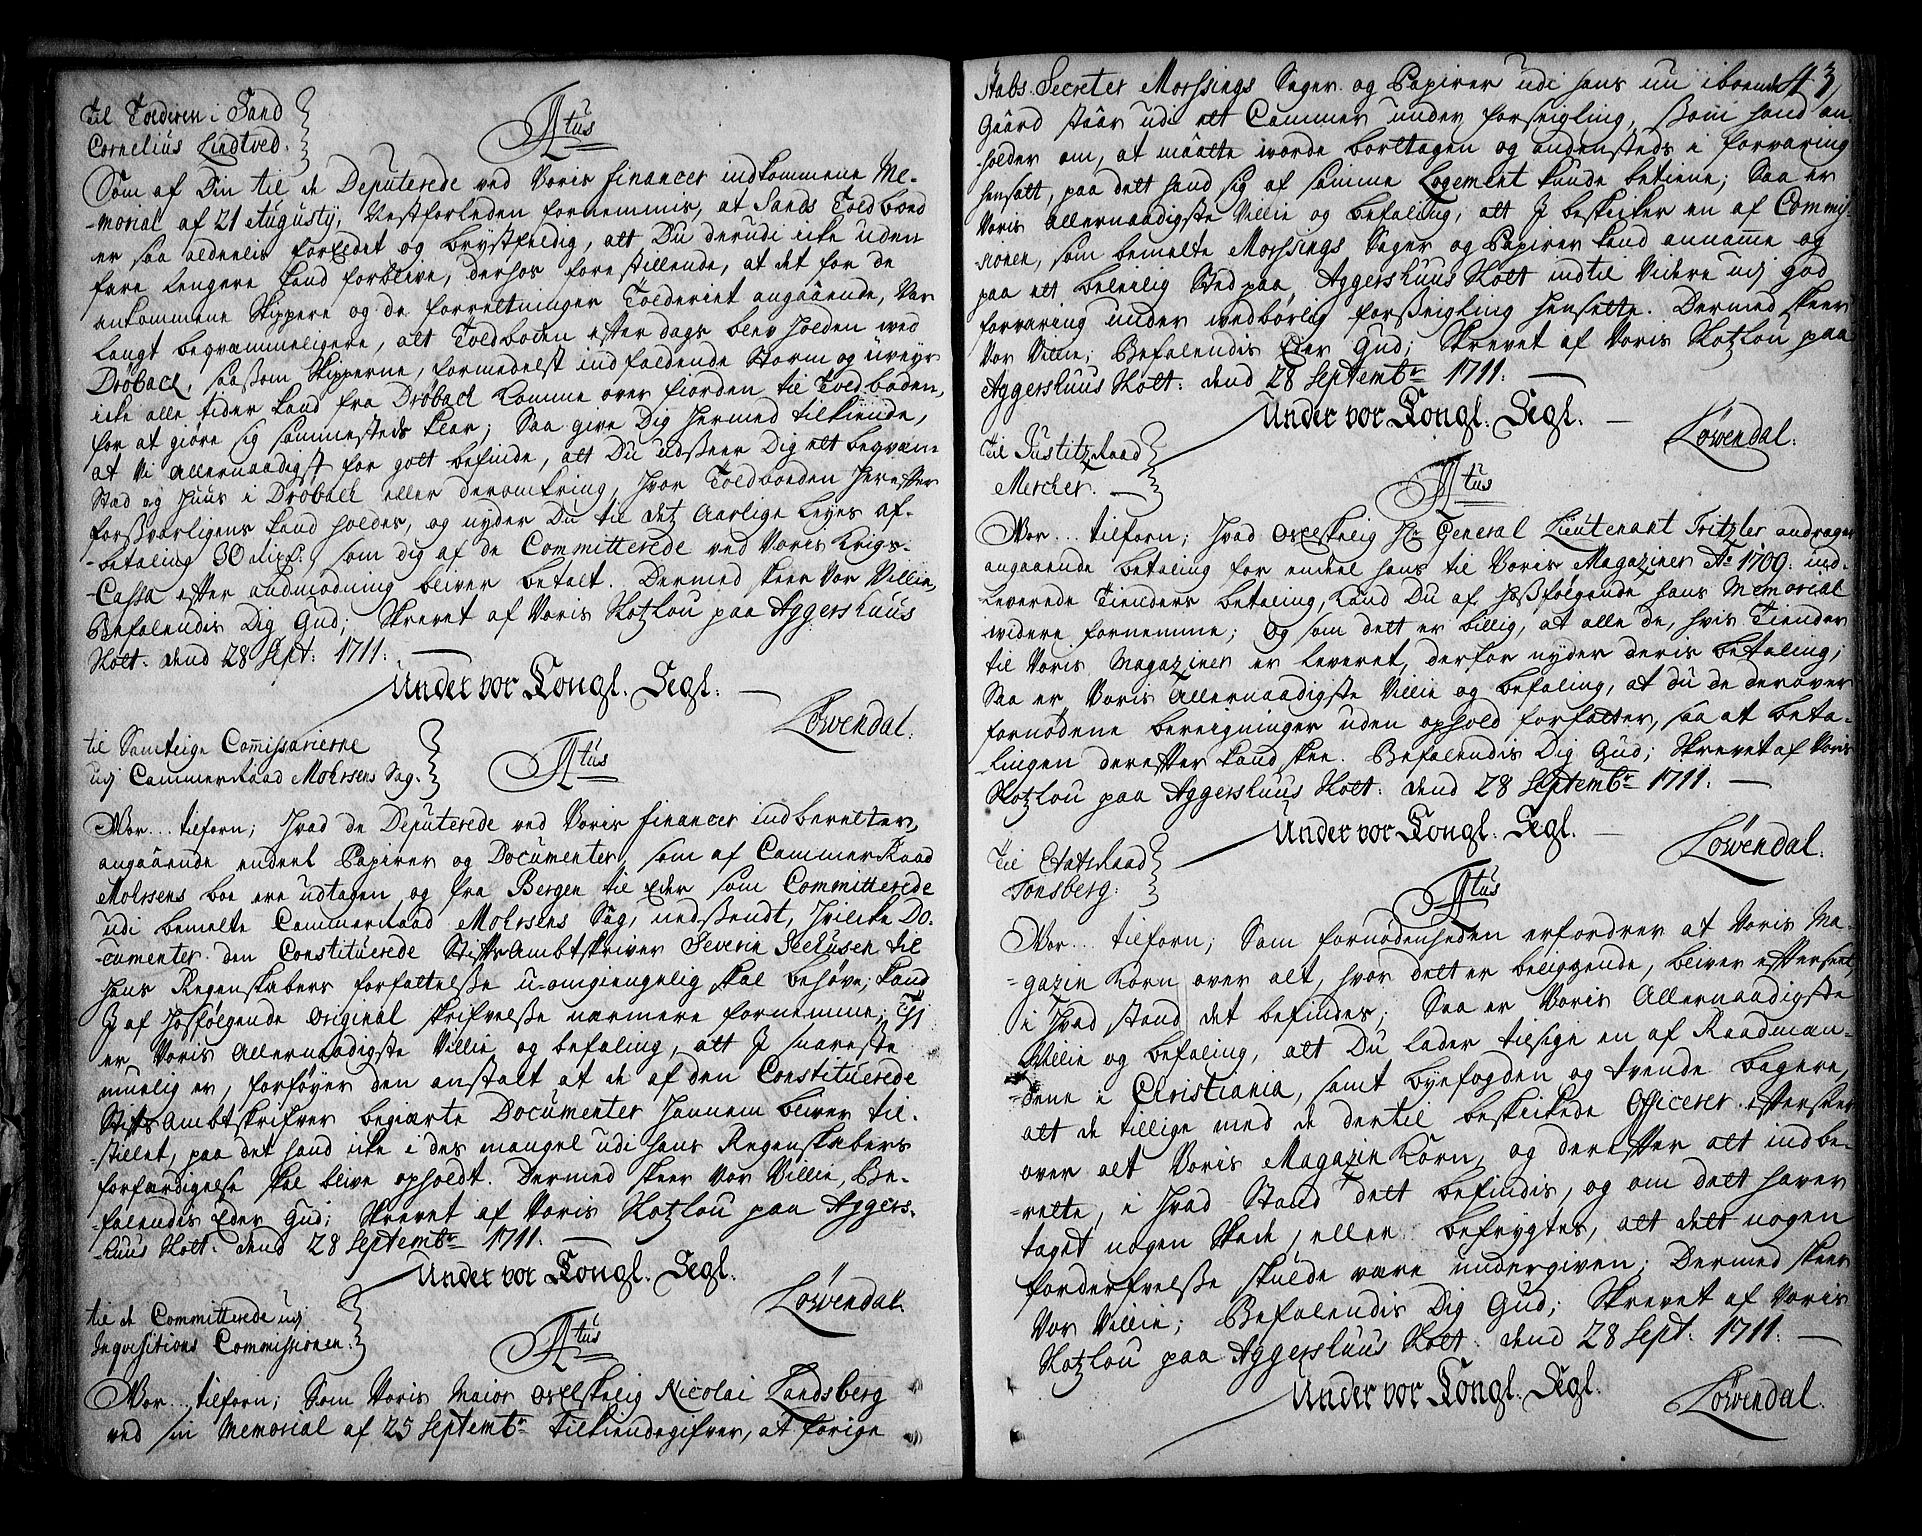 Til Tolderen i Sand
Cornelius Lindtved.
Ftus
Som af Din til de Deputerede ved Voris financer indkommene Me-
-morial af 21 Augusty, Nestforleden fornemmis, at Sands Toldboed
er saa aldeelis forældet og brystfeldig, att Du derudi icke uden
fare lengere kand forblive, derhos forestillende, at det for de
ankommene Skippere og de forretninger Tolderiet angaaende, Var
langt beqvemmeligere, att Toldboden efter dags blev holden ved
Drøbach, saasom Skipperne, formedelst indfaldende Storm og uveyr
icke alle tider kand fra Drøbach komme over fiorden til Toldboden,
for at giøre sig sammesteds klar; Saa give Dig hermed tilkiende,
at Vi allernaadigst for gott befinde, att Du udsseer Dig ett beqvem
Stæd og Huus i Drøbach eller deromkring, hvor Toldboeden herefter
forssvarligens kand holdes, og nyder Du til det Aarlige Leyes af-
-betaling 30 som dig af de Committerede ved Voris Krigs-
-Cassa efter andmodning bliver betalt. Dermed skeer Vor Villie,
Befalendis Dig Gud; Skrevet af Voris Slotzlou paa Aggershuus
Slott. dend 28 Sept: 1711.
Under vor Kongl. Segl.
Løwendal.
til Samtlige Commissarierne
udj Cammerraad Mohrsens Sag.
Ftus
Vor... tilforn; Hvad de Deputerede ved Voris financer indberetter,
angaaende endeel Papirer og Documenter, som af CammerRaad
Mohrsens boe ere udtagen, og fra Bergen til Eder som Committerede
udi bemelte Cammerraad Mohrsens Sag, nedssendt, Hvilcke Do-
-cumenter den Constituerede StiftsAmbtskriver Severin Seehusen til
Hans Regenskabers forfattelsse u-omgiengelig skal behøve, kand
J af Hosfølgende Original skrifvelsse nærmere fornemme; Thj
er Voris Allernaadigste Villie og befaling, att J snareste
muelig er, forføyer den anstalt at de af den Constituerede
StiftsAmbtskrifver begiærte Documenter Hannem bliver til-
-stillet, paa det hand icke i des mangel udi hans Regenskabers
forfærdigelse skal blive opholdt. Dermed skeer Vor Villie, Be-
-falendis Eder Gud; Skrevet af Voris Slotzlou paa Aggers-
-huus Slott. dend 28 Septembr 1711.
Under vor Kongl. Segl.
Løwendal.
til de Committerede udj
Inqvisitions Commissionen.
Ftus
Vor... tilforn; Som Voris Maior Nicolai Landsberg
ved sin Memorial af 25 Septembr Tilkiendegifver, at forige
43
Stabs Secreter Morssings Sager og Papirer udi hans nu iboende
Gaard staar udi ett Cammer under forseigling, ssom hand an-
-holder om, at maatte worde borttagen og andensteds i forvaring
hensatt, paa dett hand sig af samme Logement kunde betiene; Saa er
Voris allernaadigste Villie og befaling, att J beskicker en af Commis-
-sionen, som bemelte Morssings Sager og Papirer kand annamme og
paa ett beleilig Sted paa Aggershuus Slott indtil Videre udj god
forvaring under wedbørlig forsseigling hensette. Dermed skeer
Vor Villie; Befalendis Eder Gud; Skrevet af Voris Slotzlou paa
Aggershuus Slott. dend 28 Septembr 1711.
Under vor Kongl. Segl.
Løwendal.
Til JustitzRaad
Mercher.
Ftus
Vor... tilforn; Hvad Hr General Lieutenant Tritzler andrager
angaaende betaling for endeel hans til Voris Magaziner Ao 1709 ind-
-leverede Tienders betaling, kand Du af Hossfølgende hans Memorial
widere fornemme; Og som dett er billig, at alle de, hvis Tiender
til Voris Magaziner er leveret, derfor nyder deris betaling;
Saa er Voris Allernaadigste Villie og befaling, at du de derover
fornødene beregninger uden ophold forfatter, saa at beta-
-lingen derefter kand skee. Befalendis Dig Gud; Skrevet af Voris
Slotzlou paa Aggershuus Slott. dend 28 Septembr 1711.
Under vor Kongl. Segl.
Løwendal.
Til EtatsRaad
Tonsberg.
Ftus
Vor... tilforn; Som fornødenheden erfordrer at Voris Ma-
-gazin Korn over alt, hvor dett er beliggende, bliver efterseet
i Hvad stand det befindes; Saa er Voris Allernaadigste
Villie og befaling, att Du lader tilsige en af Raadmæn-
-dene i Christiania, samt byefogden og tvende bagere,
att de tillige med de dertil beskickede Officerer efterseer
over alt Voris Magazin Korn, og derefter alt indbe-
-rette, i Hvad Stand dett befindis, og om dett haver
taget nogen Skade, eller befrygtes, att dett nogen
forderfvelsse skulde være undergiven; Dermed skeer
Vor Villie; Befalendis Dig Gud; Skrevet af Voris
Slotzlou paa Aggershuus Slott. dend 28 Sept. 1711.
Under vor Kongl. Segl.
Løwendal.